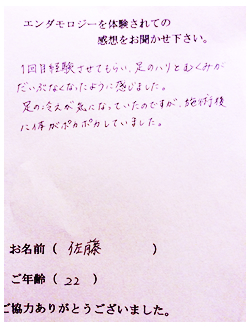 エンダモロジーを体験されての
感想をお聞かせ下さい。
1回目経験させてもらい、足のハリとむくみが
だいぶなくなったように感じました。
足の冷えが気になっていたのですが、施術後
に体がポカポカしていました。
お名前(佐藤)
ご年齢(22)
ご協力ありがとうございました。